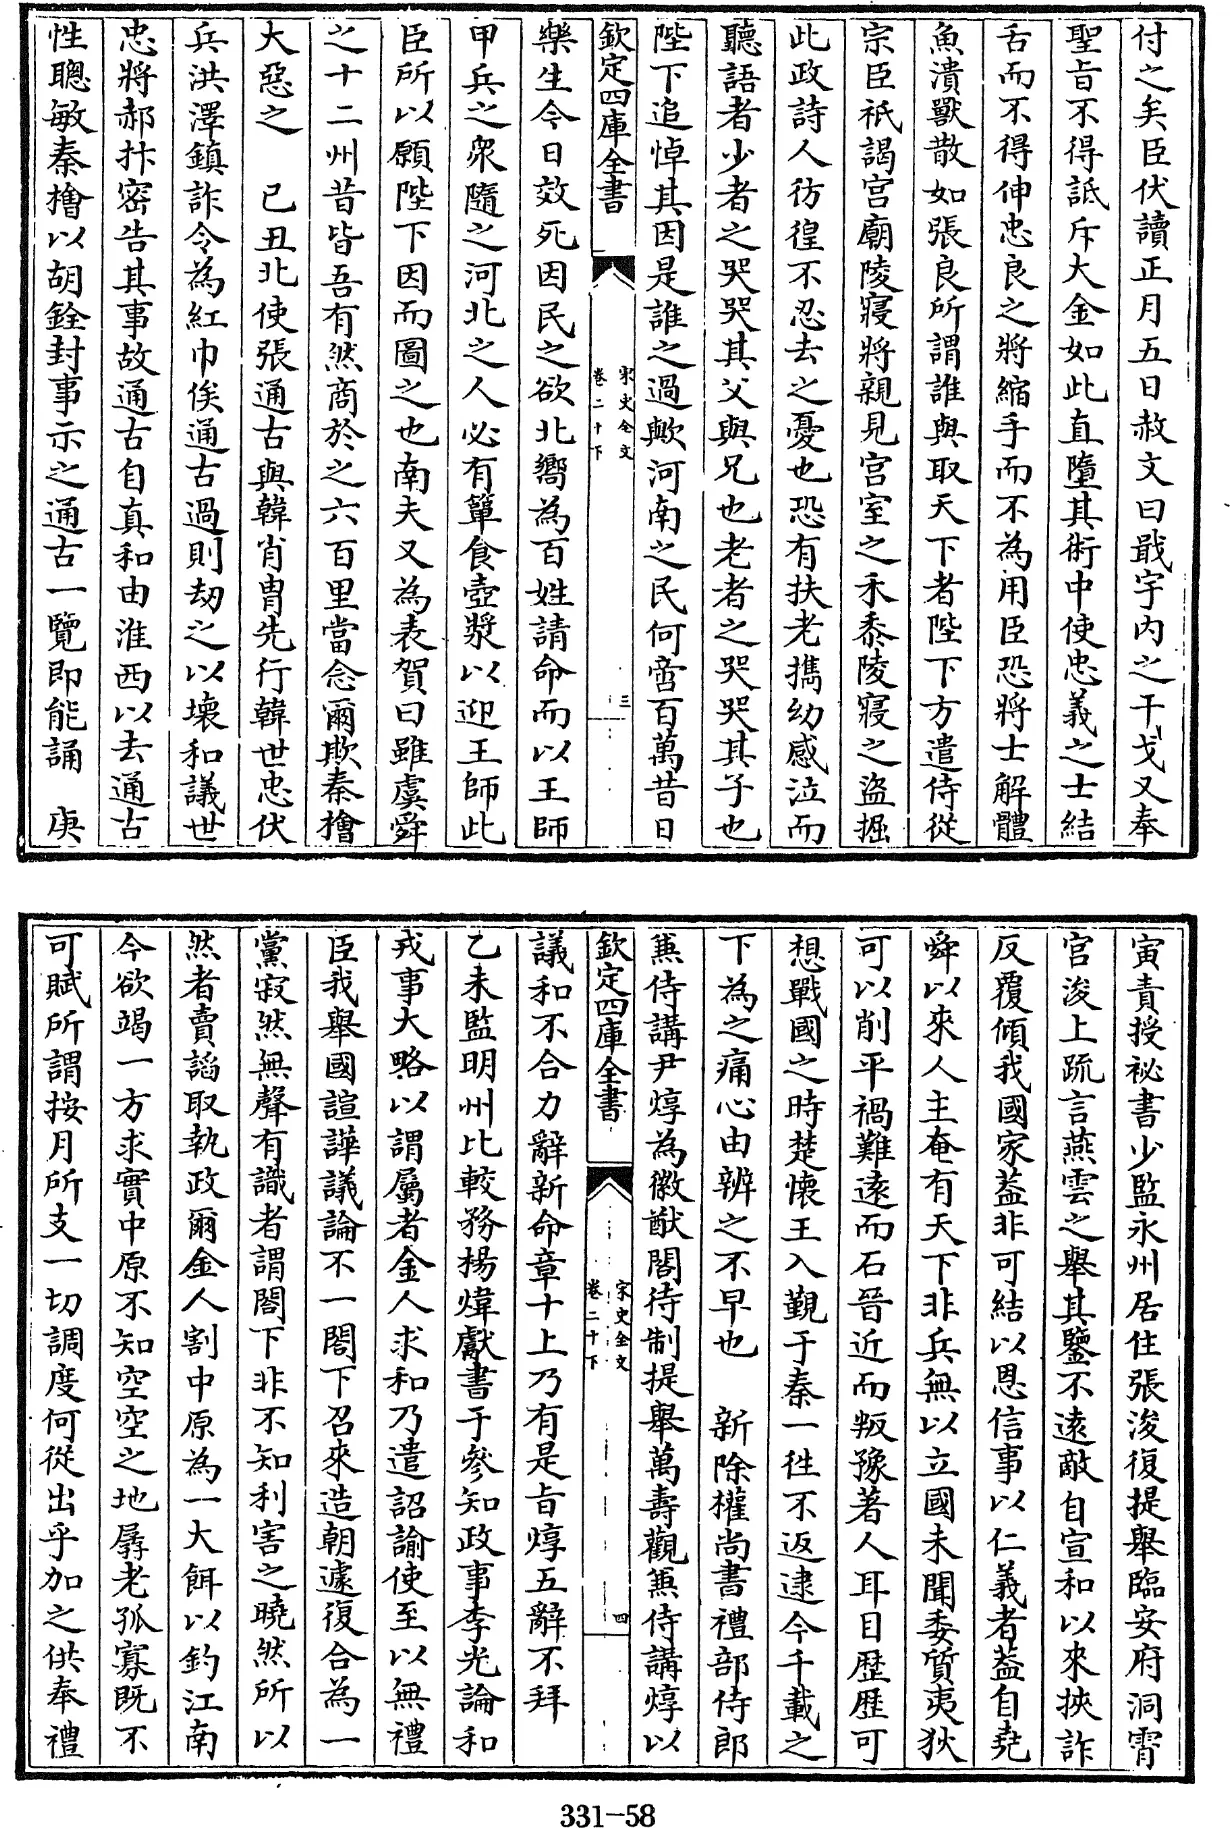 付之矣臣伏讀正月五日赦文曰戢宇内之干戈又奉
聖旨不得詆斥大金如此直墮其術中使忠義之士結
舌而不得伸忠良之將縮手而不為用臣恐將士解體
魚潰獸散如張良所謂誰與取天下者陛下方遣侍從
宗臣祇謁宫廟陵寢將親見宫室之禾黍陵寢之盜掘
此政詩人彷徨不忍去之憂也恐有扶老攜幼感泣而
聽語者少者之哭哭其父與兄也老者之哭哭其子也
陛下追悼其因是誰之過歟河南之民何啻百萬昔日
欽定四庫全書
宋史全文
卷二十下
三
樂生今日效死因民之欲北嚮為百姓請命而以王師
甲兵之衆隨之河北之人必有簞食壺漿以迎王師此
臣所以願陛下因而圖之也南夫又為表賀曰雖虞舜
之十二州昔皆吾有然商於之六百里當念爾欺秦檜
大惡之　已丑北使張通古與韓肖胄先行韓世忠伏
兵洪澤鎮詐令為紅巾俟通古過則刼之以壞和議世
忠將郝抃密告其事故通古自真和由淮西以去通古
性聰敏秦檜以胡銓封事示之通古一覽即能誦　庚
寅責授祕書少監永州居住張浚復提舉臨安府洞霄
宫浚上疏言燕雲之舉其鑒不遠敵自宣和以來挾詐
反覆傾我國家葢非可結以恩信事以仁義者葢自堯
舜以來人主奄有天下非兵無以立國未聞委質夷狄
可以削平禍難遠而石晉近而叛豫著人耳目歷歷可
想戰國之時楚懷王入覲于秦一往不返逮今千載之
下為之痛心由辨之不早也　新除權尚書禮部侍郎
兼侍講尹焞為徽猷閣待制提舉萬壽觀兼侍講焞以
欽定四庫全書
宋史全文
卷二十下
四
議和不合力辭新命章十上乃有是旨焞五辭不拜
乙未監明州比較務楊煒獻書于參知政事李光論和
戎事大略以謂屬者金人求和乃遣詔諭使至以無禮
臣我舉國諠譁議論不一閣下召來造朝遽復合為一
黨寂然無聲有識者謂閣下非不知利害之曉然所以
然者賣謟取執政爾金人割中原為一大餌以釣江南
今欲竭一方求實中原不知空空之地孱老孤寡既不
可賦所謂按月所支一切調度何從出乎加之供奉禮
331-58